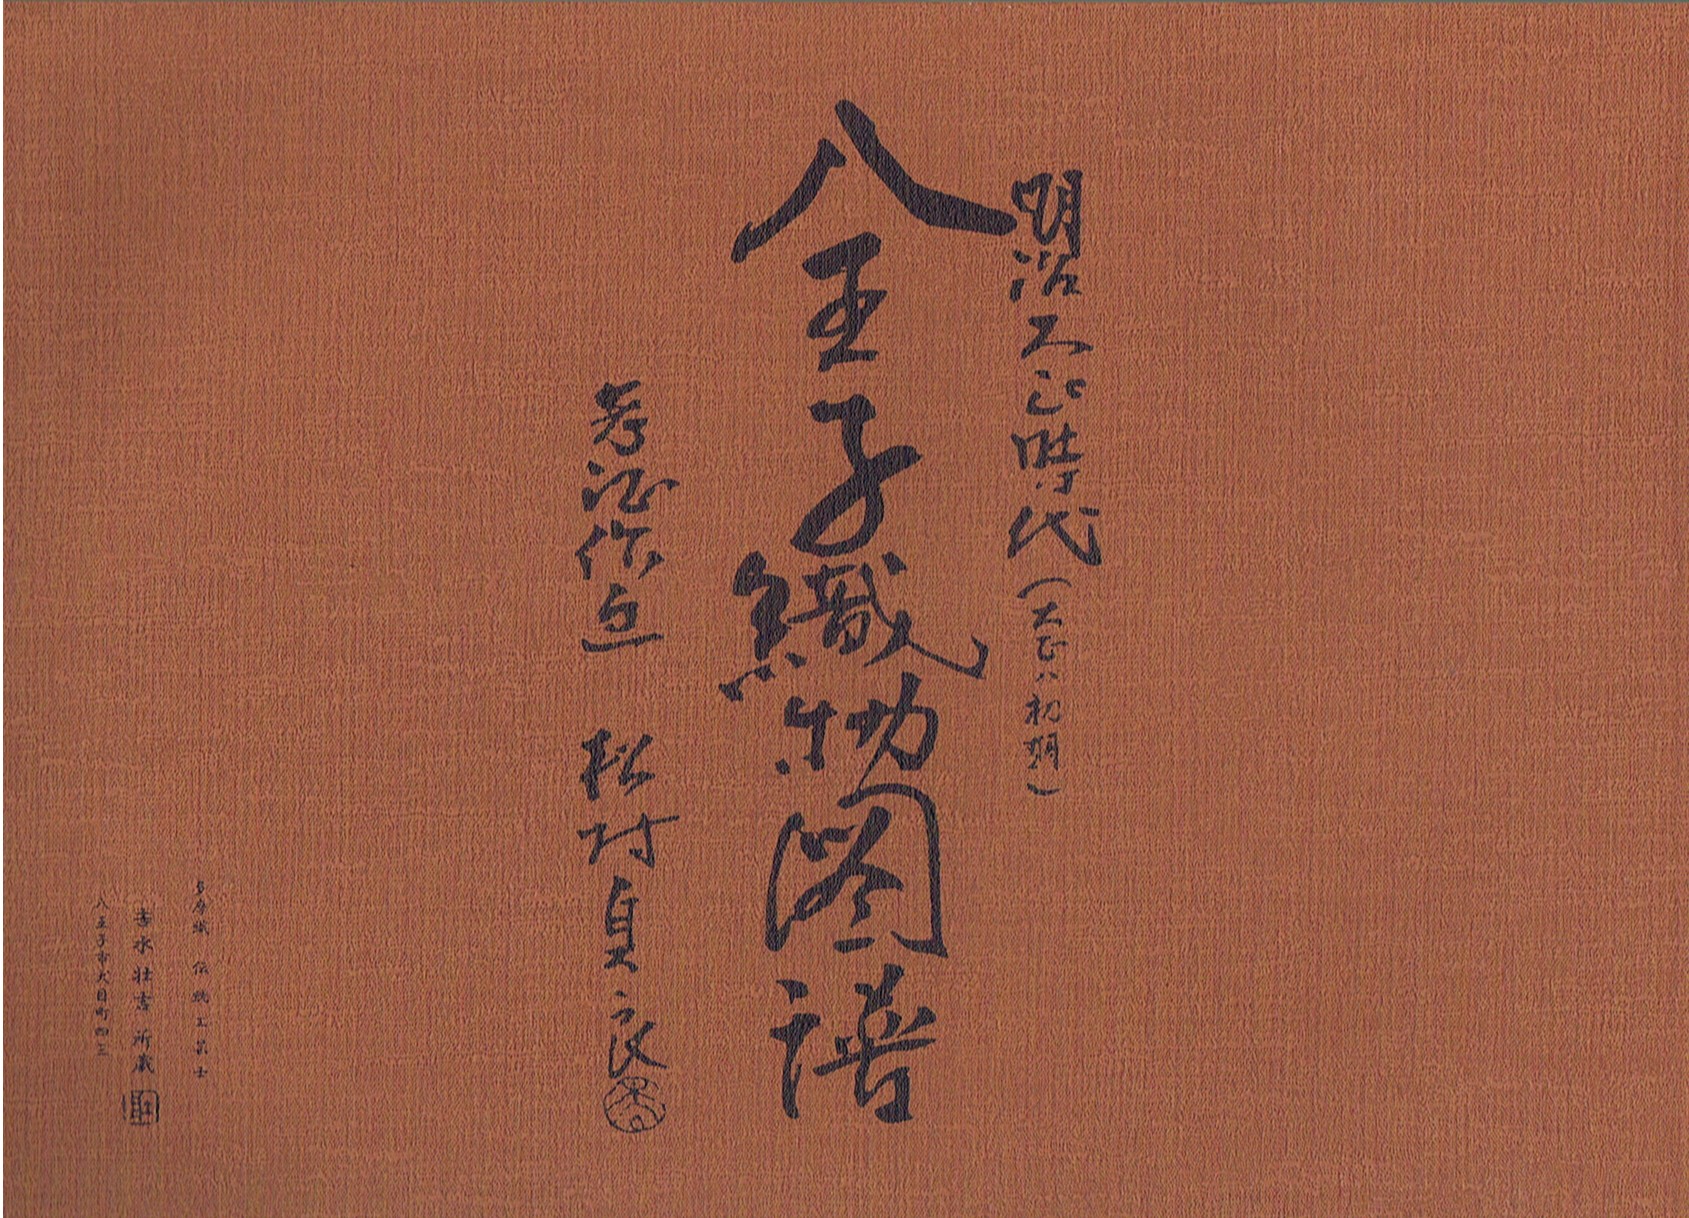 明治大正時代(大正ハ初期)
八王子織物図譜
考證作画 松村貞良
多摩織 伝統工芸士
吉水壮吉 所蔵
八王子市大目町四三